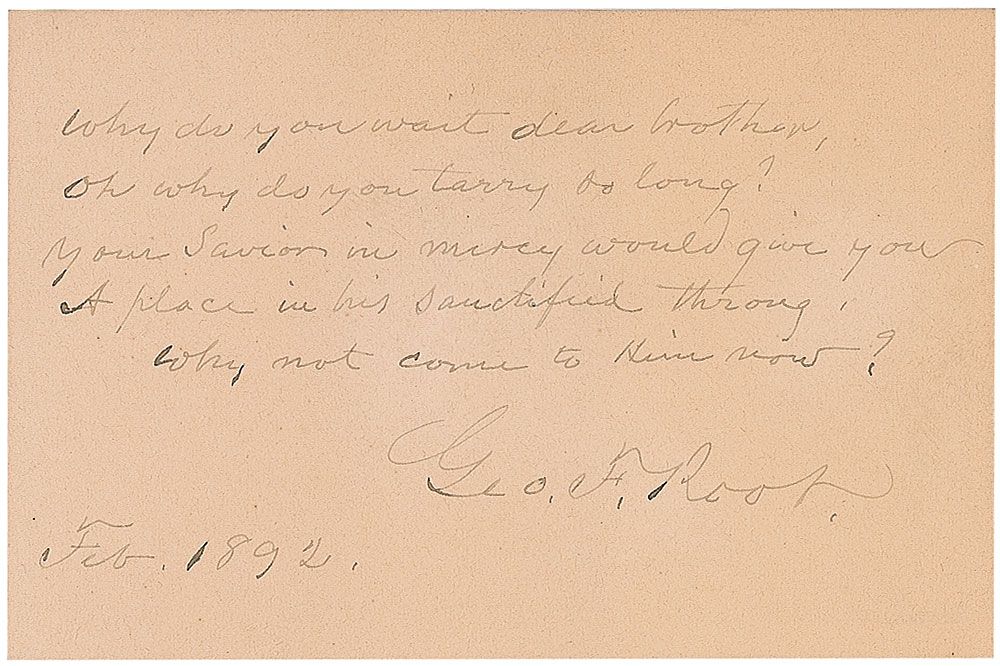 Why do you wait dear brother,
Oh why do you tarry so long?
Your Savior in mercy would give you
A place in his sanctified throng.
Why not come to Him now?
Geo. F. Root.
Feb. 1892.